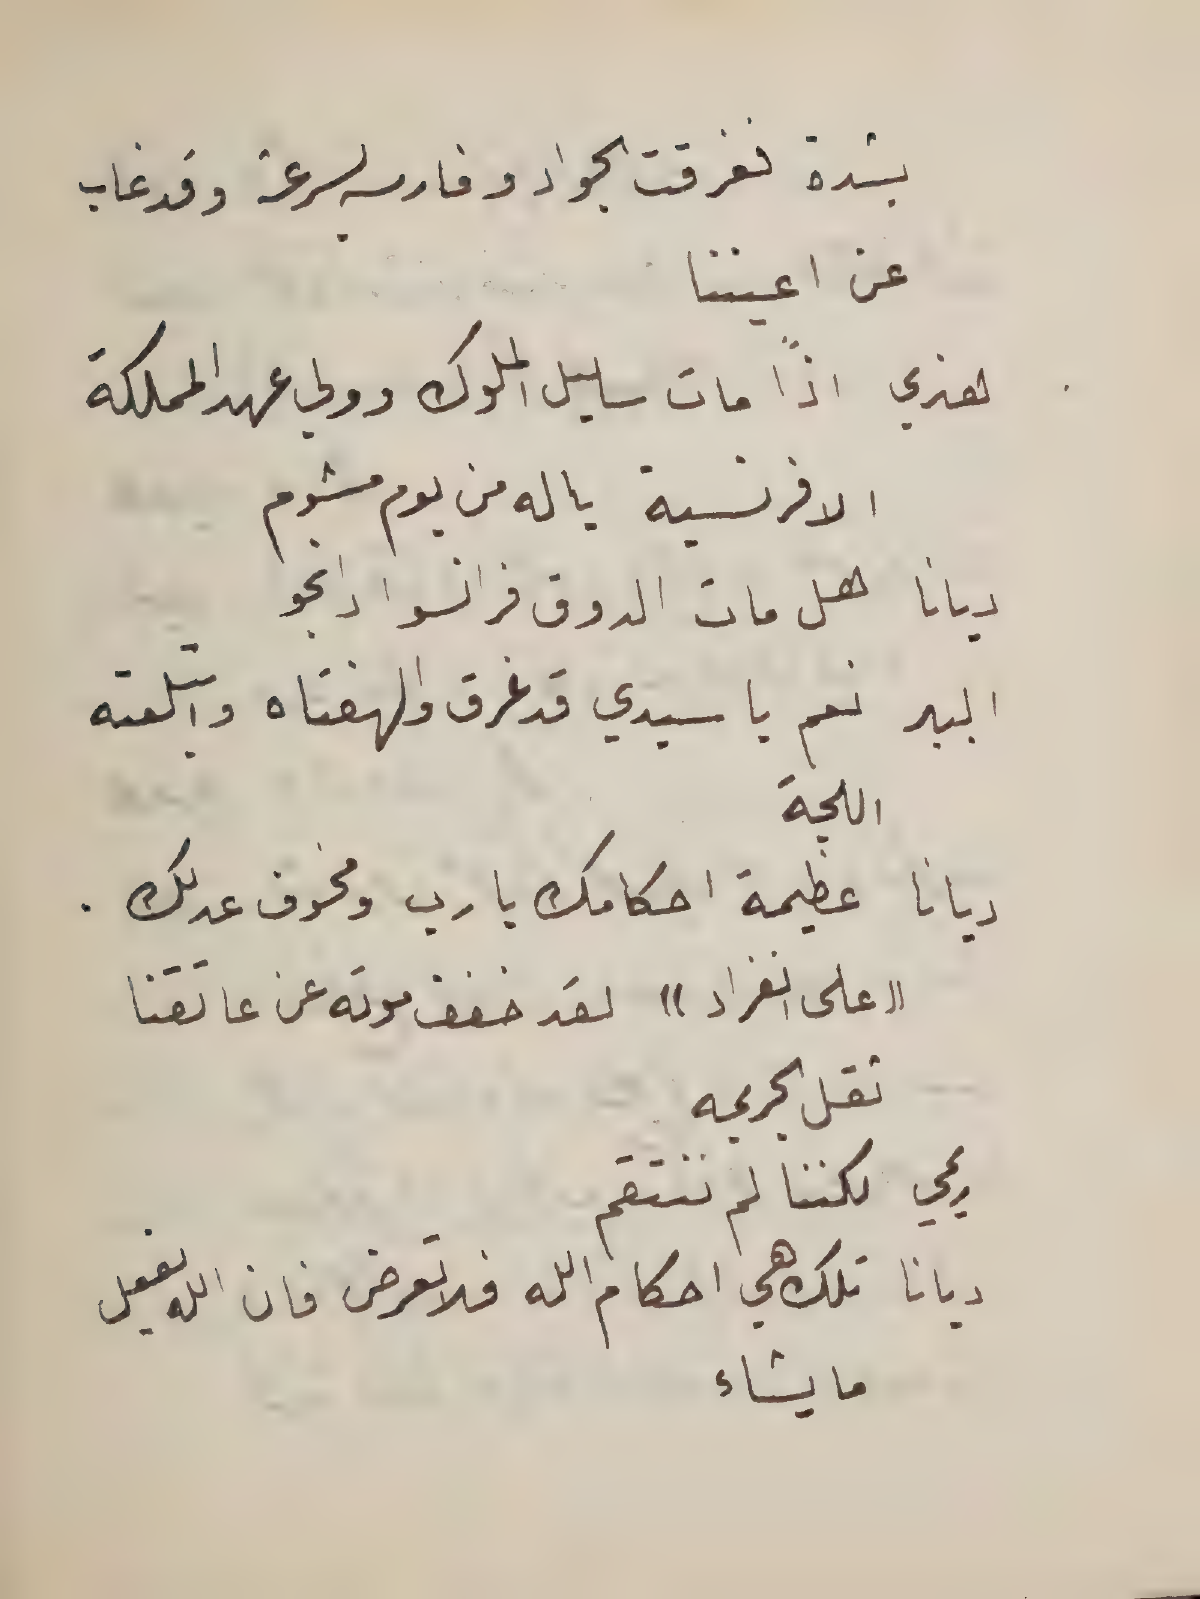 بشدة فغرقت الجواد وفارسه بسرعة وقد غاب
عن اعيننا
هنري اذًا مات سليل الملوك وولي عهد المملكة
الافرنسية ياله من يوم مشوم
ديانا هل مات الدوق فرانسوا دانجو
البير نعم يا سيدي قد غرق والهفتاه وابتلعته
اللجة
ديانا عظيمة احكامك يا رب ومخوف عدلك .
«على انفراد» لقد خفف موته عن عاتقنا
ثقل الجريمه
ريمي لكننا لم ننتقم
ديانا تلك هي احكام الله فلا تعرض فان الله يفعل
ما يشاء